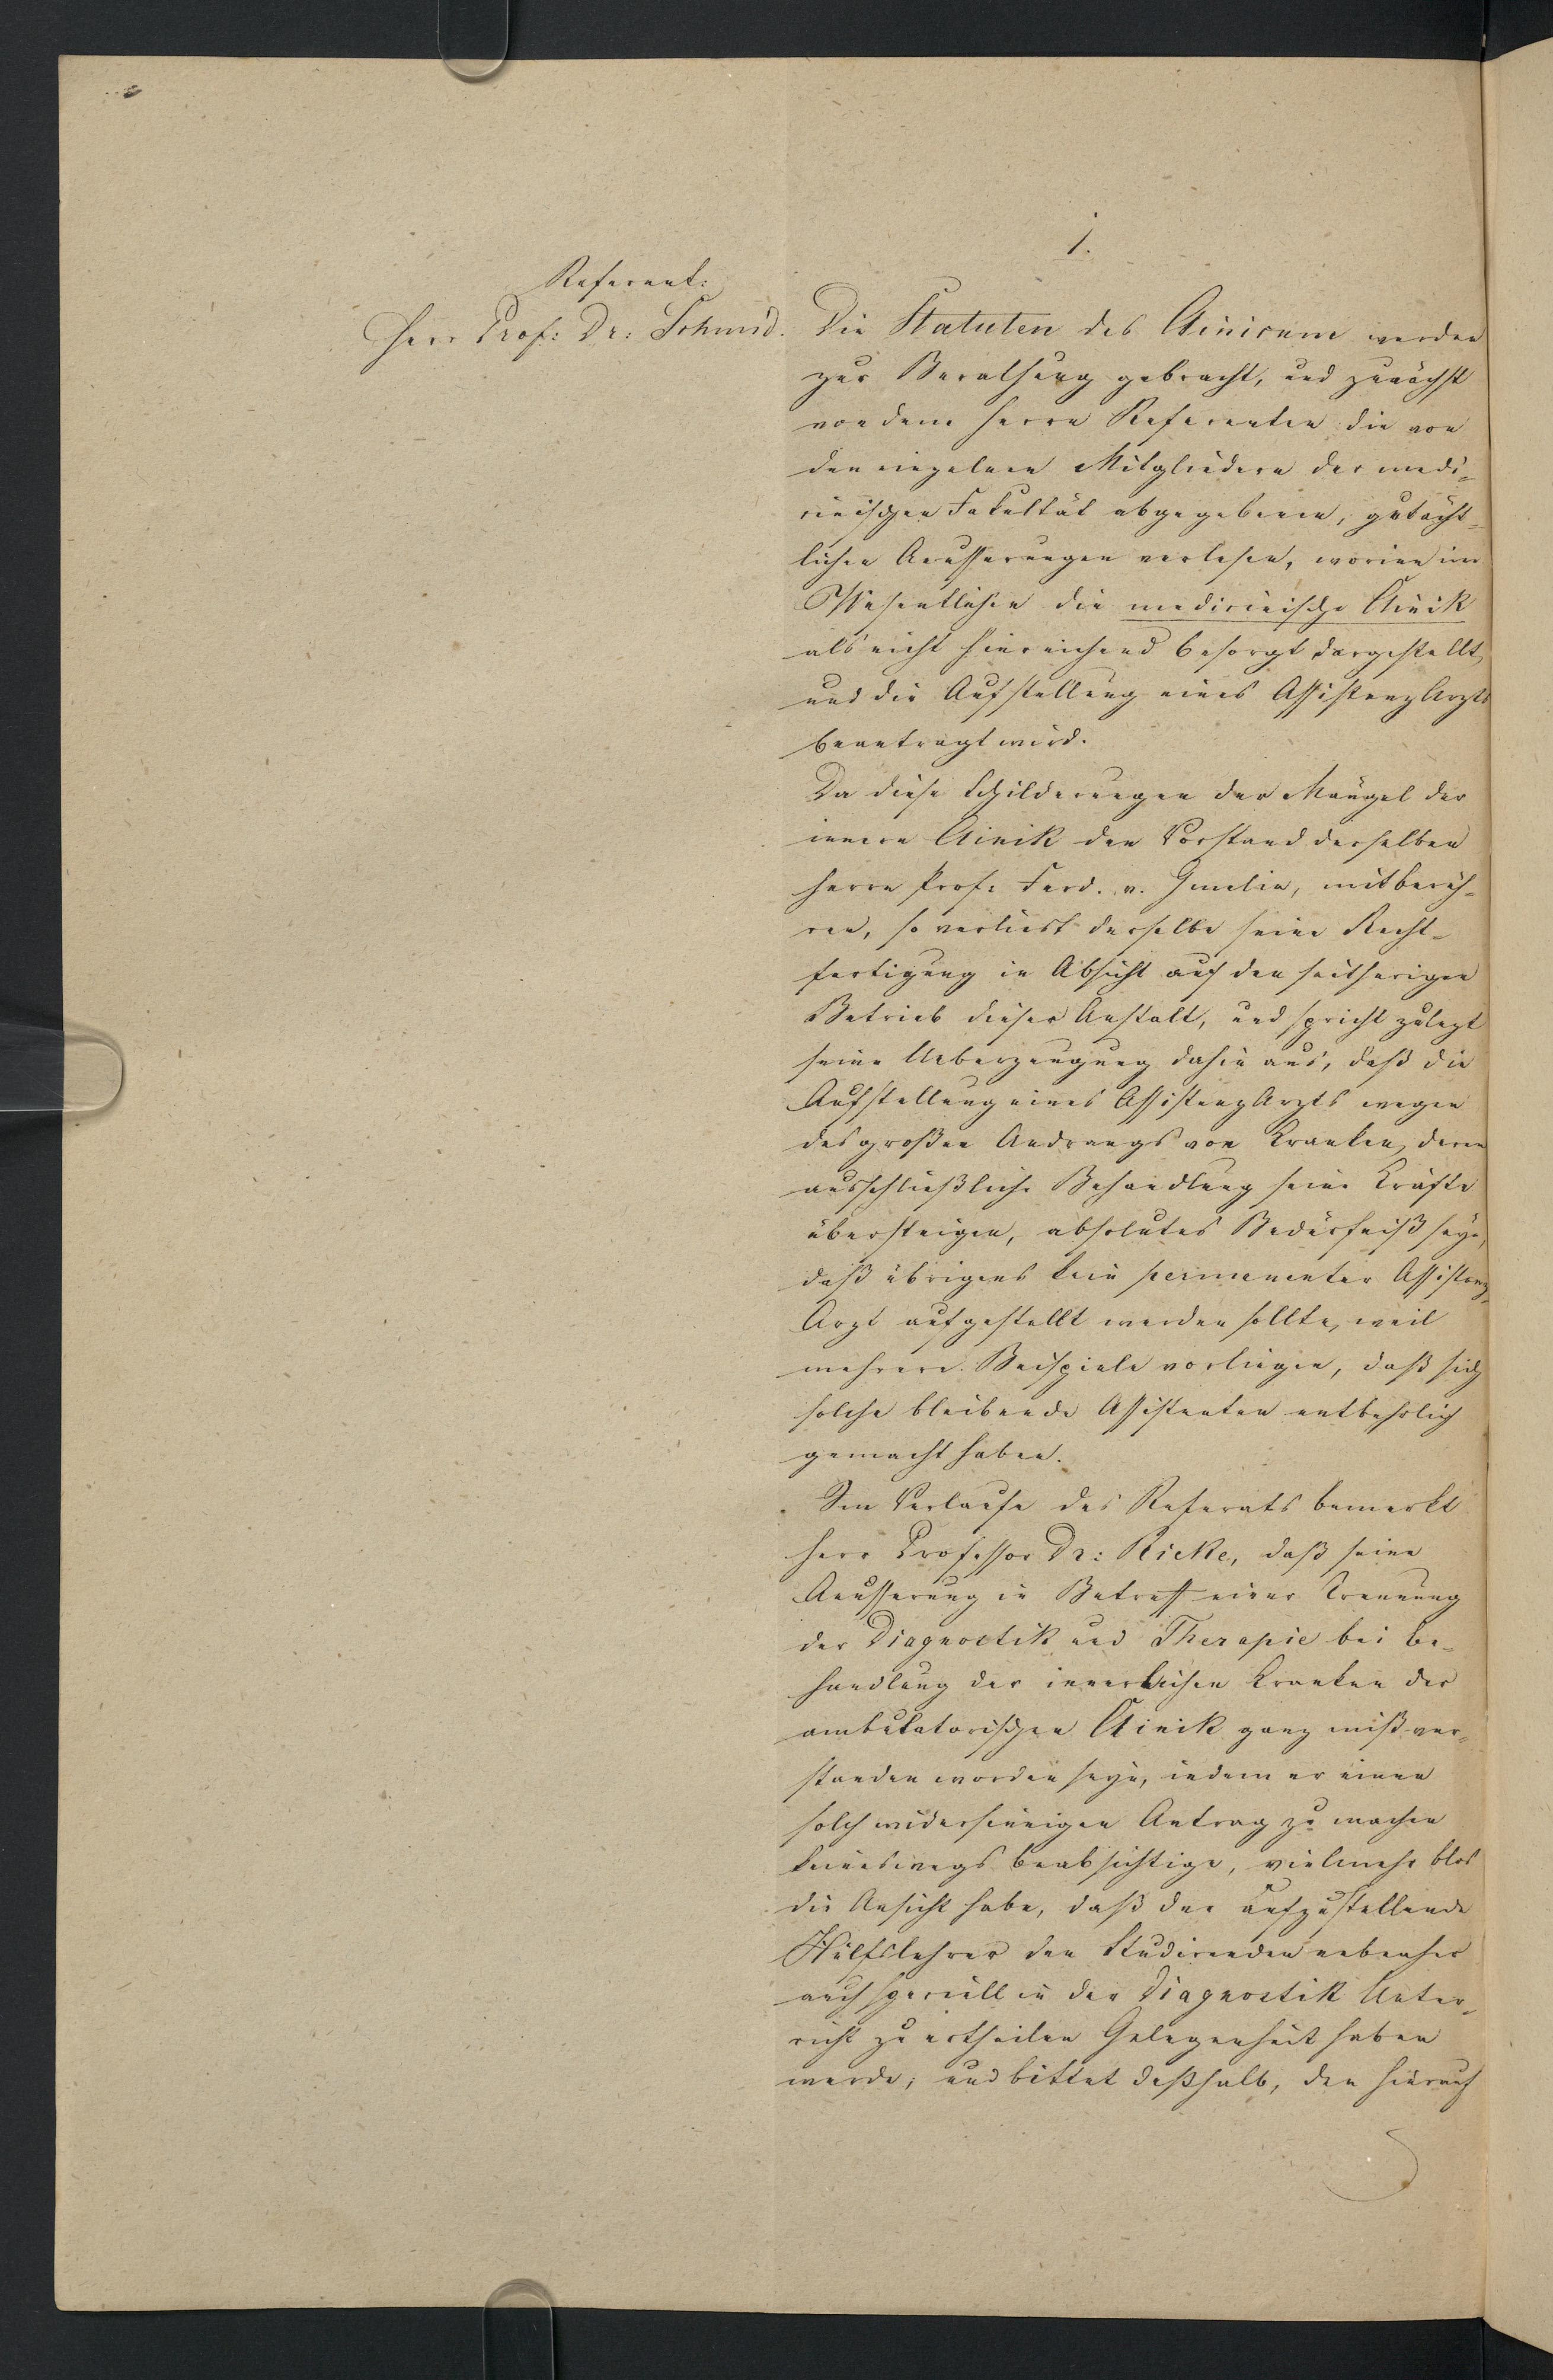 1.
Referent:
Herr Prof: Dr: Schmid.
Die Statuten des Clinicum werden
zur Berathung gebracht, und zunächst
von dem Herrn Referenten die von
den einzelnen Mitgliedern der medi¬
cinischen Fakultät abgegebenen, gutächt¬
lichen Aeusserungen verlesen, worinn im
Wesentlichen die medicinische Clinik
als nicht hinreichend besorgt dargestellt,
und die Aufstellung eines AssistenzArzts
beantragt wird.
Da diese Schilderungen der Mängel der
innern Clinik den Vorstand derselben
Herrn Prof: Ferd. v. Gmelin, mitberüh¬
ren, so verliest derselbe seine Recht¬
fertigung in Absicht auf den seitherigen
Betrieb dieser Anstalt, und spricht zulezt
seine Ueberzeugung dahin aus, daß die
Aufstellung eines AssistenzArzts wegen
des großen Andrangs von Kranken, deren
ausschließliche Behandlung seine Kräfte
übersteigen, absolutes Bedürfniß seye,
daß übrigens kein permanenter Assistenz¬
Arzt aufgestellt werden sollte, weil
mehrere Beispiele vorliegen, daß sich
solche bleibende Assistenten entbehrlich
gemacht haben.
Im Verlaufe des Referats bemerkt
Herr Professor Dr: Riecke, daß seine
Aeusserung in Betreff einer Trennung
der Diagnostik und Therapie bei Be¬
handlung der innerlichen Kranken der
ambulatorischen Clinik ganz mißver¬
standen worden seye, indem er einen
solch widersinnigen Antrag zu machen
keineswegs beabsichtige, vielmehr blos
die Ansicht habe, daß der aufzustellende
Hülfslehrer den Studirenden nebenher
auch speciell in der Diagnostik Unter¬
richt zu ertheilen Gelegenheit haben
werde; und bittet deßhalb, den hierauf